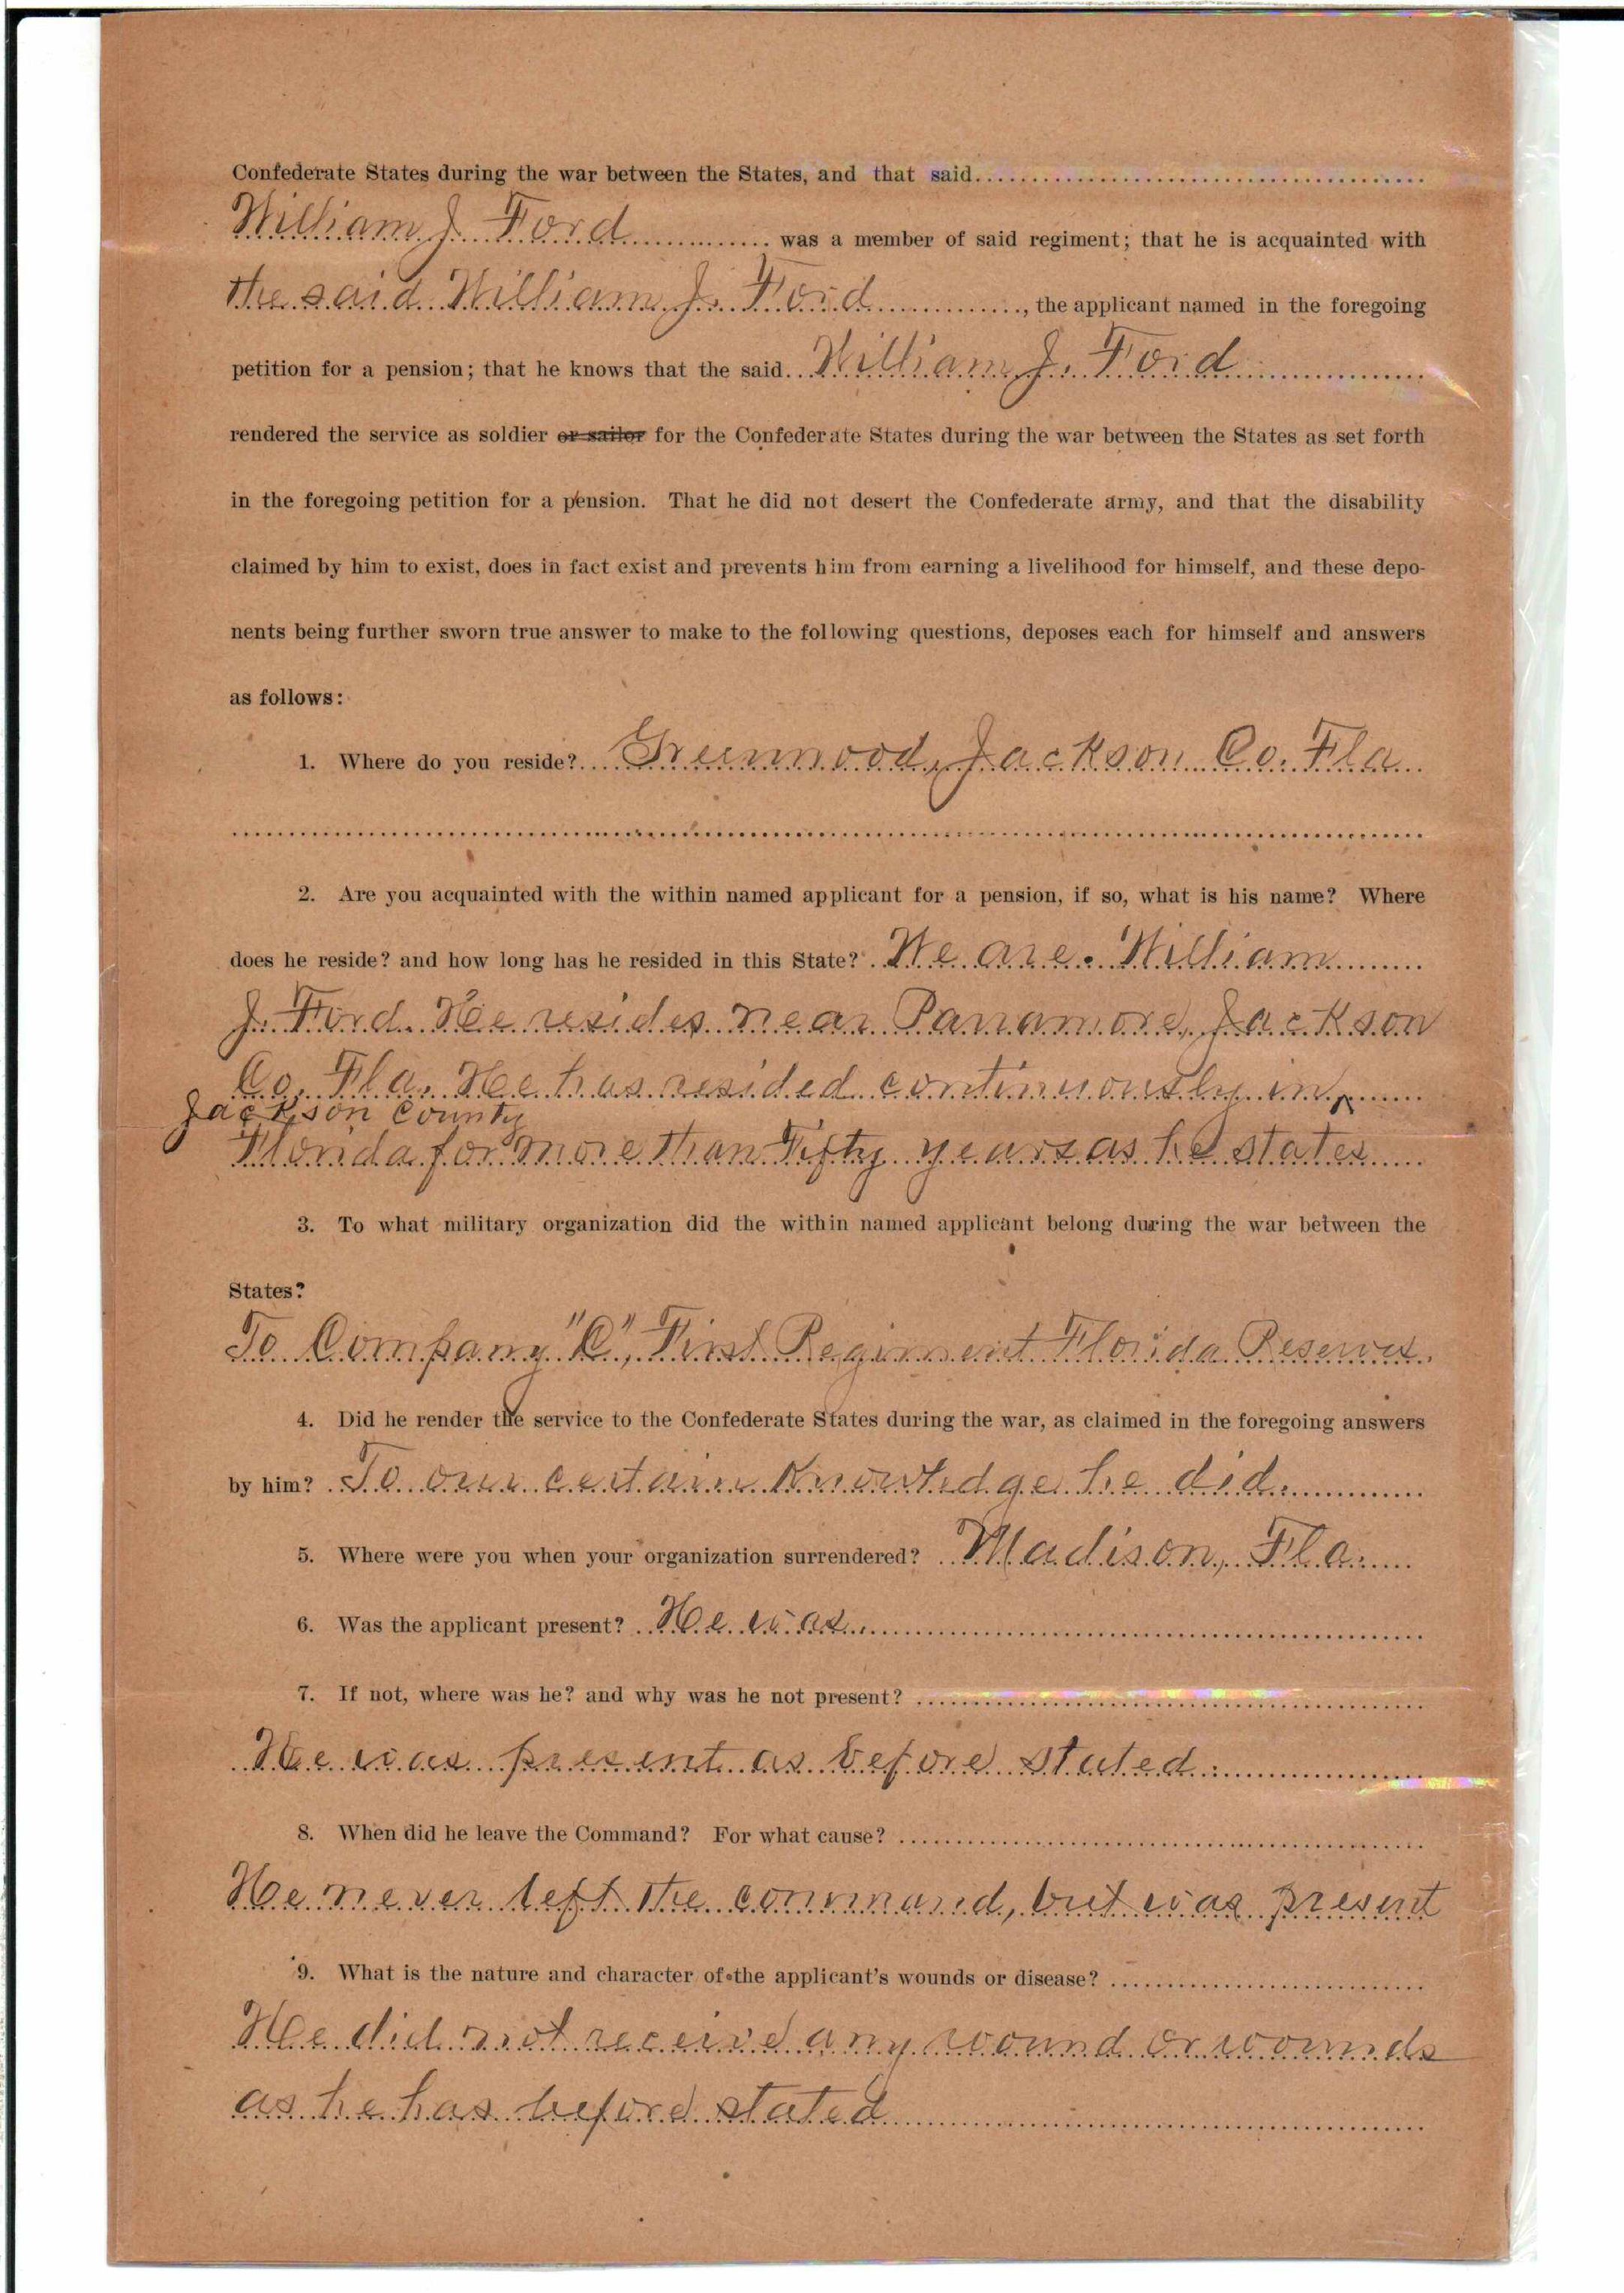 Confederate States during the war between the States, and that said
William J. Ford was a member of said regiment; that he is acquainted with
the said William J. Ford, the applicant named in the foregoing
petition for a pension; that he knows that the said William J. Ford
rendered the service as soldier or sailor for the Confederate States during the war between the States as set forth
in the foregoing petition for a pension. That he did not desert the Confederate army, and that the disability
claimed by him to exist, does in fact exist and prevents him from earning a livelihood for himself, and these depo-
nents being further sworn true answer to make to the following questions, deposes each for himself and answers
as follows:
1. Where do you reside? Greenwood, Jackson Co. Fla
2. Are you acquainted with the within named applicant for a pension, if so, what is his name? Where
does he reside? and how long has he resided in this State? We are. William
J. Ford. He resides near Panamore, Jackson
Co. Fla. He has resided continuously in ^
Jackson County
Florida for more than Fifty years as he states
3. To what military organization did the within named applicant belong during the war between the
States?
To Company "C", First Regiment Florida Reserves.
4. Did he render the service to the Confederate States during the war, as claimed in the foregoing answers
by him? To our certain knowledge he did.
5. Where were you when your organization surrendered? Madison, Fla.
6. Was the applicant present? He was
7. If not, where was he? and why was he not present?
He was present as before stated.
8. When did he leave the Command? For what cause?
He never left the command, but was present
9. What is the nature and character of the applicant's wounds or disease?
He did not receive any wound or wounds
as he has before stated